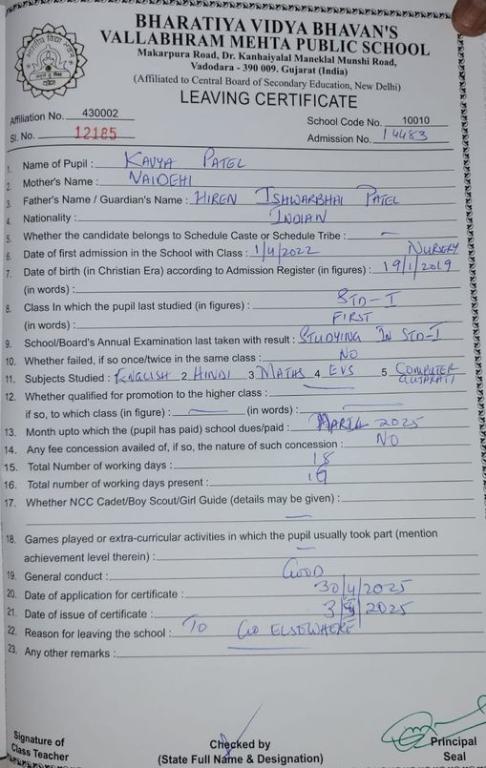 BHARATIYA VIDYA BHAVAN'S
VALLABHRAM MEHTA PUBLIC SCHOOL
Makarpura Road, Dr. Kanhaiyalal Maneklal Munshi Road,
Vadodara - 390 009. Gujarat (India)
(Affiliated to Central Board of Secondary Education, New Delhi)
LEAVING CERTIFICATE
Affiliation No. 430002 School Code No. 10010
Sl. No. 12185 Admission No. 14483
1. Name of Pupil : KAVYA PATEL
2. Mother's Name : NAIDEHI
3. Father's Name / Guardian's Name : HIREN ISHWARBHAI PATEL
4. Nationality : INDIAN
5. Whether the candidate belongs to Schedule Caste or Schedule Tribe : —
6. Date of first admission in the School with Class : 1/4/2022 NURSERY
7. Date of birth (in Christian Era) according to Admission Register (in figures) : 19/1/2019
(in words) :
8. Class In which the pupil last studied (in figures) : STD-I
(in words) : FIRST
9. School/Board's Annual Examination last taken with result : STUDYING IN STD-I
10. Whether failed, if so once/twice in the same class : NO
11. Subjects Studied : ENGLISH 2 HINDI 3 MATHS 4 EVS 5. COMPUTER
GUJARATI
12. Whether qualified for promotion to the higher class : —
if so, to which class (in figure) : — (in words) : —
13. Month upto which the (pupil has paid) school dues/paid : 2025
14. Any fee concession availed of, if so, the nature of such concession : NO
15. Total Number of working days : 18
16. Total number of working days present :
17. Whether NCC Cadet/Boy Scout/Girl Guide (details may be given) :
—
18. Games played or extra-curricular activities in which the pupil usually took part (mention
achievement level therein) : —
19. General conduct : GOOD
20. Date of application for certificate : 30/4/2025
21. Date of issue of certificate : 2025
22. Reason for leaving the school : TO GO ELSEWHERE
23. Any other remarks :
Signature of
Class Teacher
Checked by
(State Full Name & Designation)
Principal
Seal